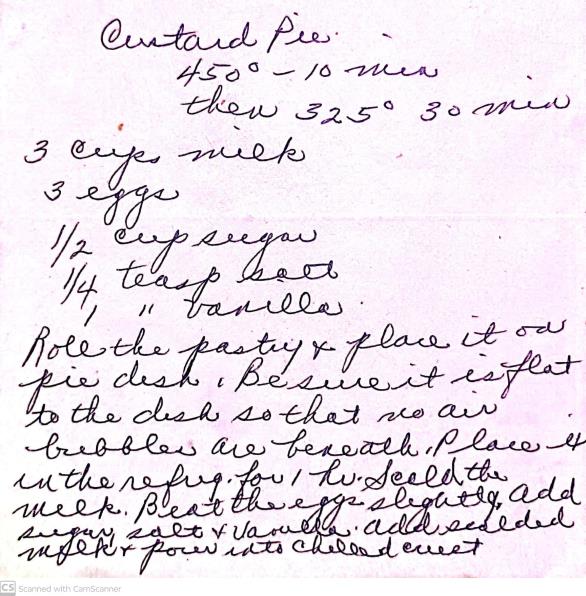 Custard Pie.
450° - 10 min
then 325° 30 min
3 cups milk
3 eggs
1/2 cup sugar
1/4 teasp salt
1 " vanilla
Roll the pastry & place it on
pie dish. Be sure it is flat
to the dish so that no air
bubbles are beneath. Place it
in the refrig. for 1 hr. Scald the
milk. Beat the eggs slightly, add
sugar, salt & Vanilla. add scalded
milk & pour into chilled crust
CS Scanned with CamScanner